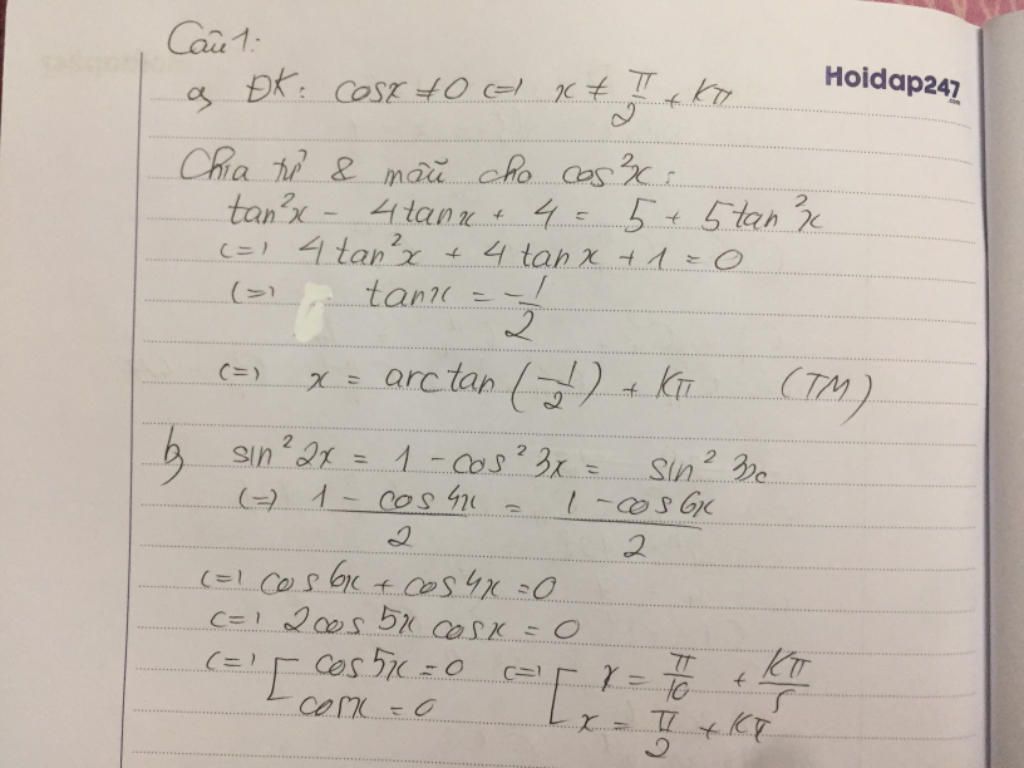 Câu 1:
a, ĐK: cosx ≠ 0 (=) x ≠ π/2 + Kπ
Hoidap247
.com
Chia tử & mẫu cho cos²x:
tan²x - 4tanx + 4 = 5 + 5tan²x
(=) 4tan²x + 4tanx + 1 = 0
(=) tanx = -1/2
(=) x = arctan(-1/2) + Kπ (TM)
b, sin²2x = 1 - cos²3x = sin²3x
(=) (1 - cos4x)/2 = (1 - cos6x)/2
(=) cos6x + cos4x = 0
(=) 2cos5x cosx = 0
(=) [ cos5x = 0 (=) [ x = π/10 + Kπ/5
cosx = 0 x = π/2 + Kπ